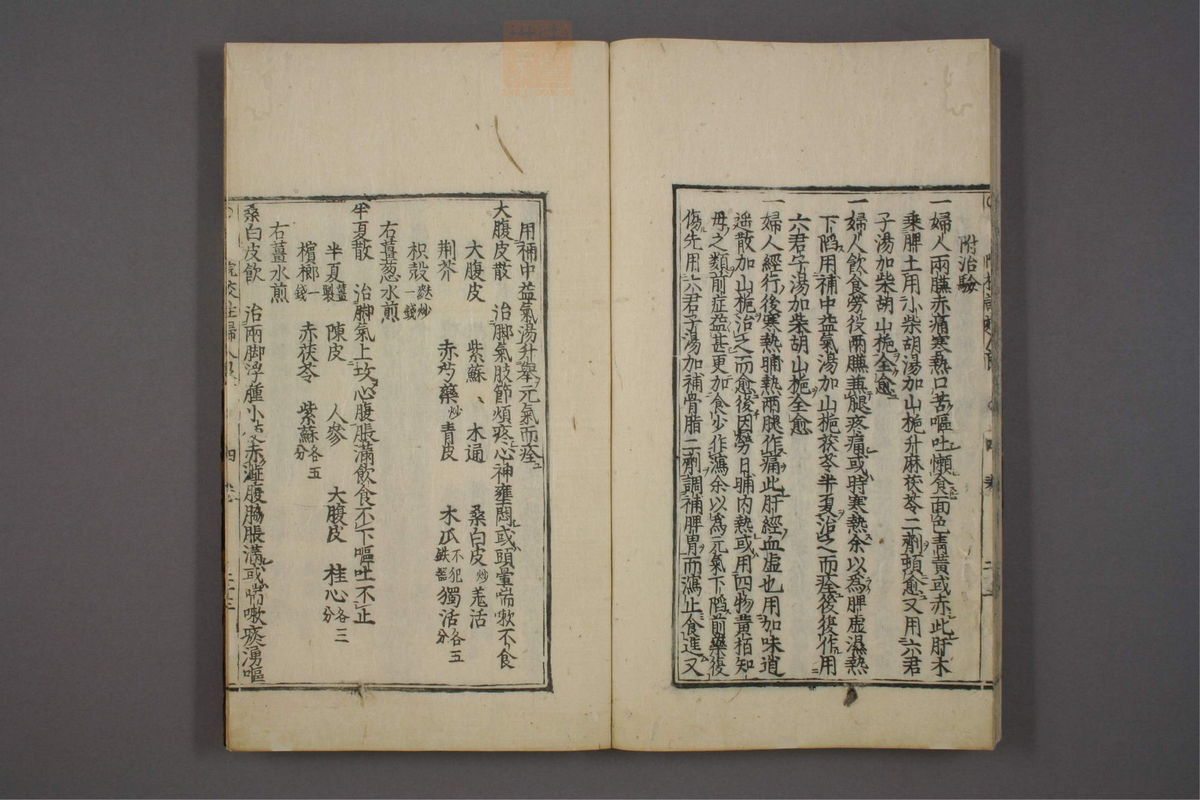 附治驗
一婦人兩臁赤痛寒熱口苦嘔吐懶食面色青黃或赤此肝木
乘脾土用小柴胡湯加山梔升麻茯苓二劑頓愈又用六君
子湯加柴胡山梔全愈
一婦人飲食勞役兩臁兼腿疼痛或時寒熱余以爲脾虛濕熱
下陷用補中益氣湯加山梔茯苓半夏治之而痊後復作用
六君子湯加柴胡山梔全愈
一婦人經行後寒熱晡熱兩腿作痛此肝經血虛也用加味逍
遥散加山梔治之而愈後因勞日晡内熱或用四物黃栢知
母之類前症益甚更加食少作瀉余以爲元氣下陷前藥復
傷先用六君子湯加補骨脂二劑調補脾胃而瀉止食進又
用補中益氣湯升舉元氣而痊
大腹皮散 治脚氣肢節煩疼心神壅悶或頭暈喘嗽不食
大腹皮 紫蘇 木通 桑白皮炒 羌活
荆芥 赤芍藥炒 青皮 木瓜不犯鉄器 獨活各五分
枳殼麩炒一錢
右薑葱水煎
半夏散 治脚氣上攻心腹脹滿飲食不下嘔吐不止
半夏薑製 陳皮 人參 大腹皮 桂心各三分
檳榔一錢 赤茯苓 紫蘇各五分
右薑水煎
桑白皮飲 治兩脚浮腫小便赤澁腹脇脹滿或喘嗽痰湧嘔